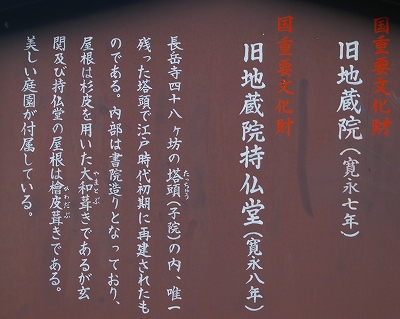 国重要文化財
旧地蔵院(寛永七年)
国重要文化財
旧地蔵院持仏堂(寛永八年)
長岳寺四十八ヶ坊の塔頭(子院)の内、唯一
たっちゅう
残った塔頭で江戸時代初期に再建されたも
のである。内部は書院造りとなっており、
屋根は杉皮を用いた大和葺きであるが玄
やまとぶ
関及び持仏堂の屋根は檜皮葺きである。
ひわだぶ
美しい庭園が付属している。